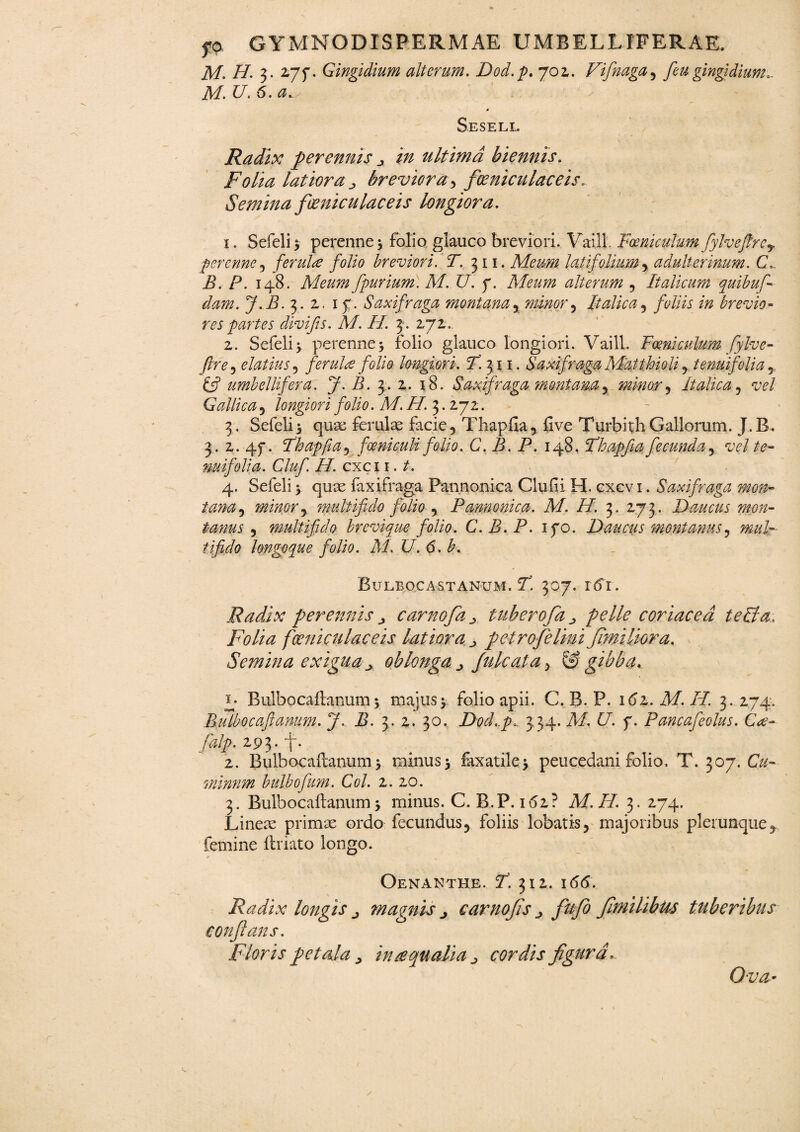 50 GYMNODISPERMAE UMBELLIFERAE.
M. H. 3. 275. Gingidium alterum. Dod. p. 702. Viſnaga, ſeu gingidium.
M. U. 6. a.
SESELI.
Radix perennis, in ultimâ biennis.
Folia latiora, breviora, fœniculaceis.
Semina fœniculaceis longiora.
1. Seſeli; perenne; folio glauco breviori. Vaill. Fœniculum ſylveſtre,
perenne, ferulæ folio breviori. T. 311. Meum latifolium, adulterinum. C.
B. P. 148. Meum ſpurium. M. U. 5. Meum alterum, Italicum quibuſ-
dam. J. B. 3. 2. 15. Saxifraga montana, minor, Italica, foliis in brevio-
res partes diviſis. M. H. 3. 272.
2. Seſeli; perenne; folio glauco longiori. Vaill. Fœniculum ſylve-
ſtre, elatius, ferulæ folio longiori. T. 311. Saxifraga Matthioli, tenuifolia,
& umbellifera. J. B. 3. 2. 18. Saxifraga montana, minor, Italica, vel
Gallica, longiori folio. M. H. 3. 272.
3. Seſeli; quæ ferulæ facie, Thapſia, ſive Turbith Gallorum. J. B.
3. 2. 45. Thapſia, fœniculi folio. C. B. P. 148. Thapſia ſecunda, vel te-
nuifolia. Cluſ. H. CXCII. t.
4. Seſeli; quæ ſaxifraga Pannonica Cluſii H. CXCVI. Saxifraga mon-
tana, minor, multifido folio, Pannonica. M. H. 3. 273. Daucus mon-
tanus, multifido brevique folio. C. B. P. 150. Daucus montanus, mul-
tifido longoque folio. M. U. 6. b.
BULBOCASTANUM. T. 307. 161.
Radix perennis, carnoſa, tuberoſa, pelle coriaceâ tecta.
Folia fœniculaceis latiora, petroſelini ſimiliora.
Semina exigua, oblonga, ſulcata, & gibba.
1. Bulbocaſtanum; majus; folio apii. C. B. P. 162. M. H. 3. 274.
Bulbocaſtanum. J. B. 3. 2. 30. Dod. p. 334. M. U. 5. Pancaſeolus. Cæ-
ſalp. 293. †.
2. Bulbocaſtanum; minus; ſaxatile; peucedani folio. T. 307. Cu-
minum bulboſum. Col. 2. 20.
3. Bulbocaſtanum; minus. C. B. P. 162? M. H. 3. 274.
Lineæ primæ ordo ſecundus, foliis lobatis, majoribus plerunque,
ſemine ſtriato longo.
OENANTHE. T. 312. 166.
Radix longis, magnis, carnoſis, fuſo ſimilibus tuberibus
conſtans.
Floris petala, inæqualia, cordis figurâ.
Ova-